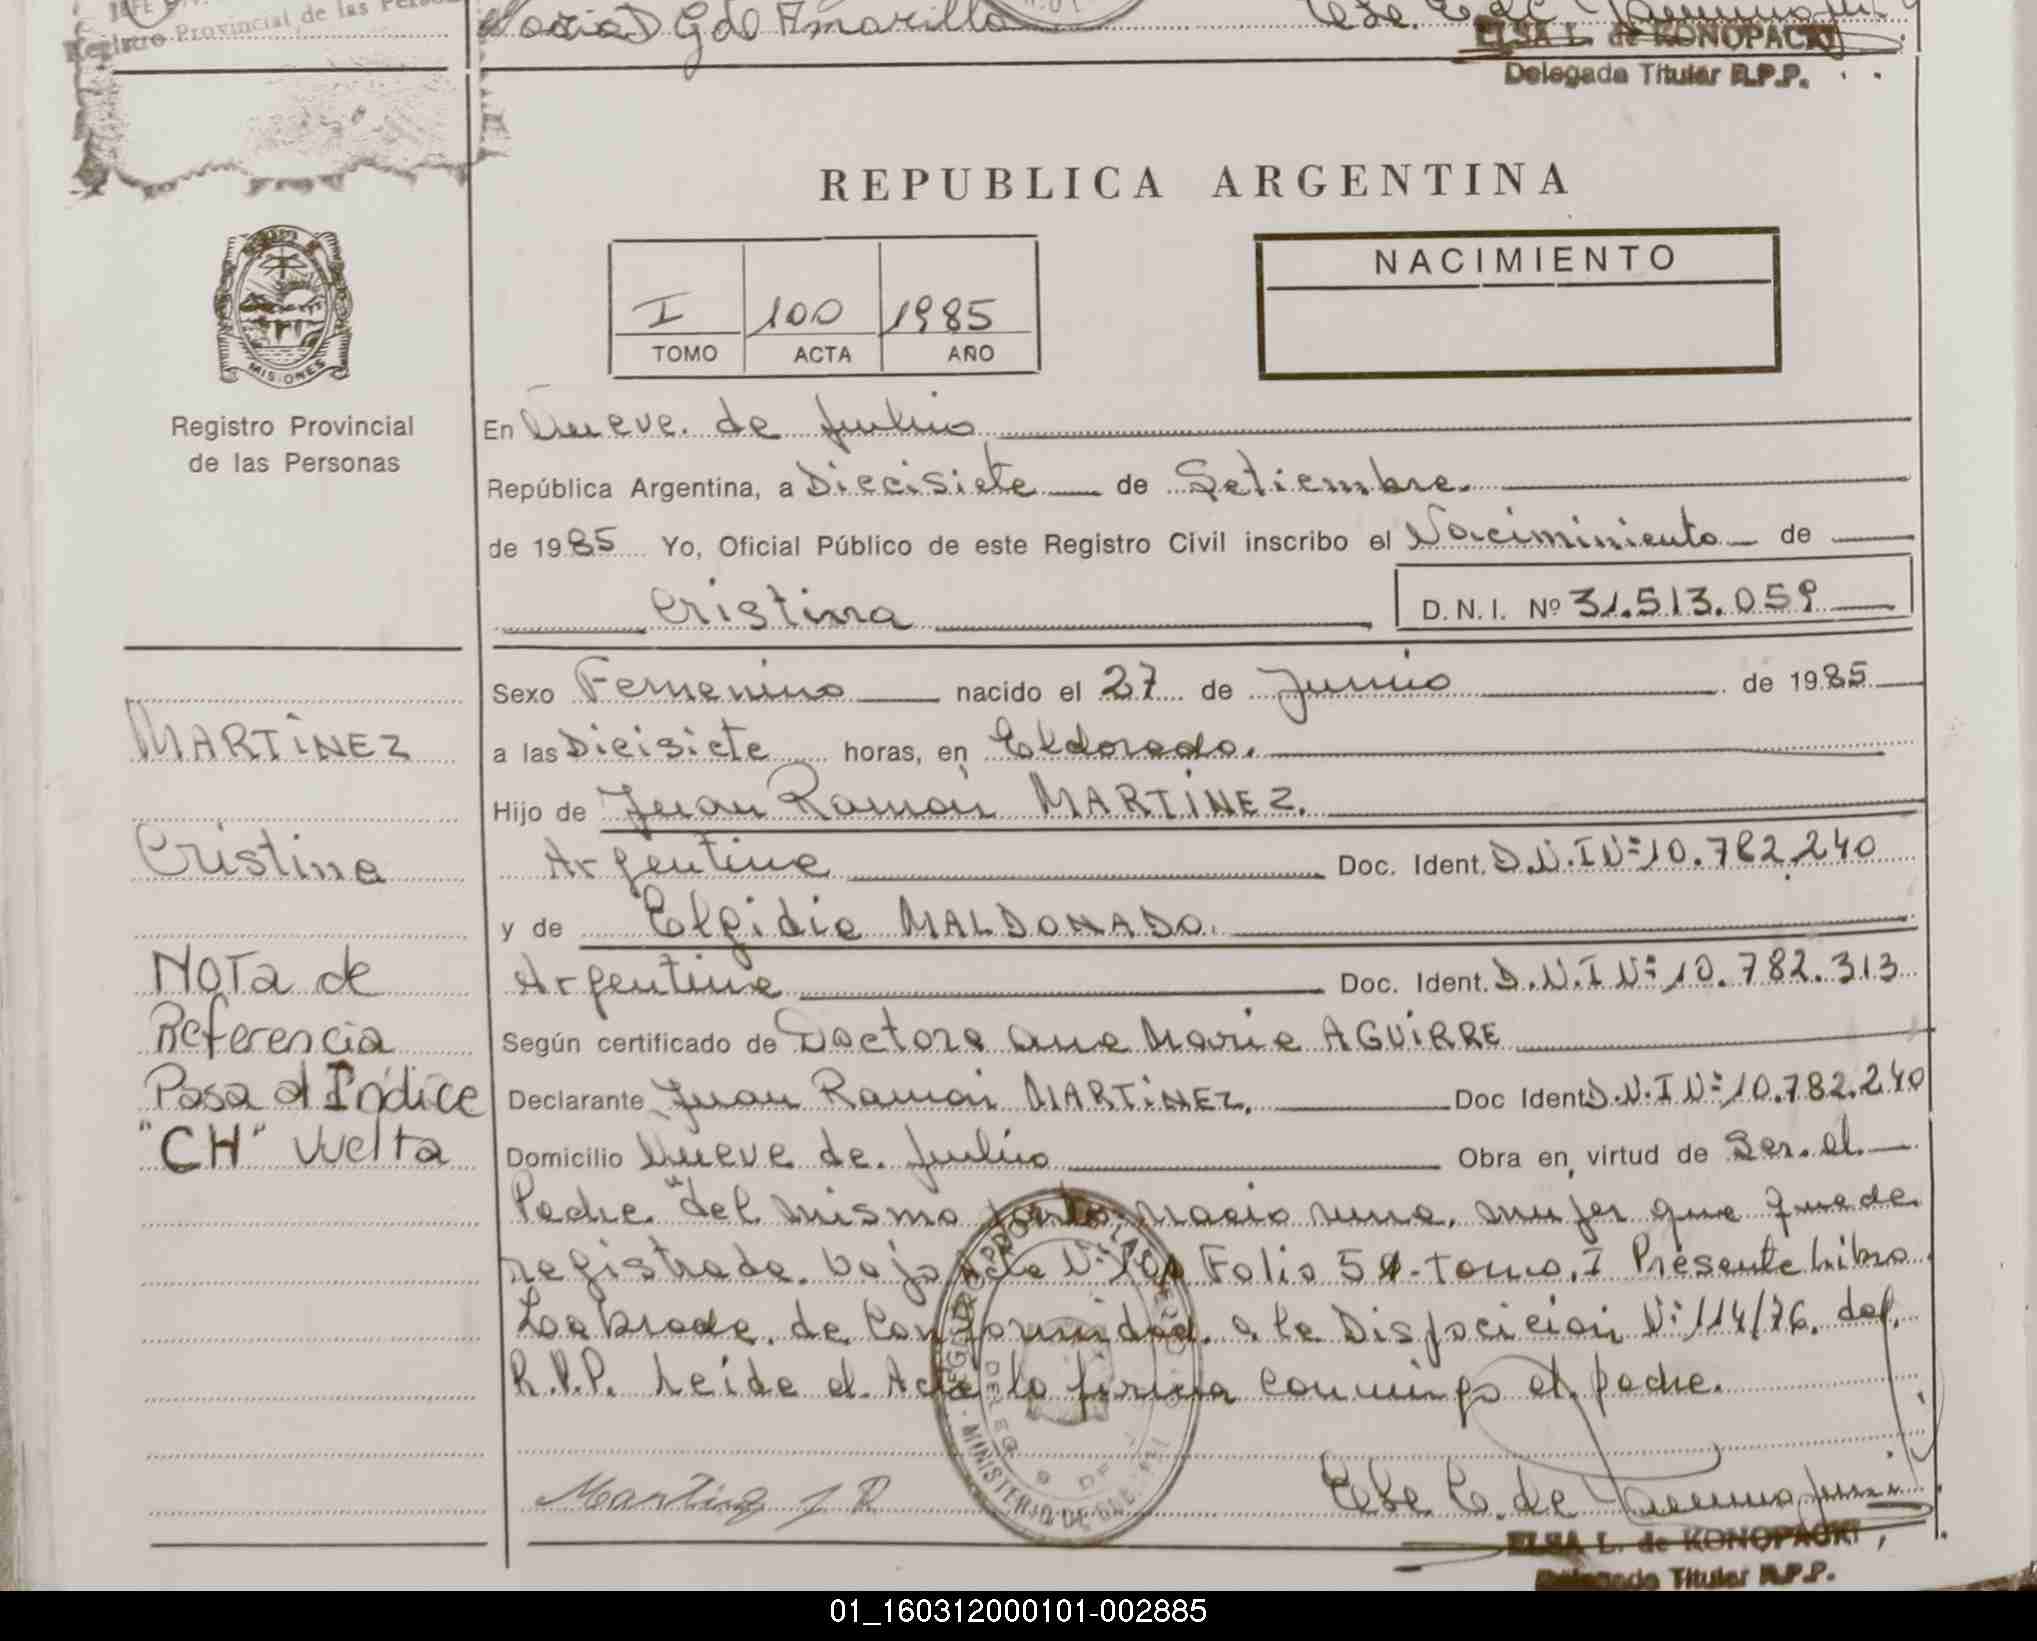 Registro Provincial de las Personas
Maria D G de Amarilla
ELSA L. de KONOPACKI
Delegada Titular R.P.P.
REPUBLICA ARGENTINA
NACIMIENTO
I 100 1985
TOMO ACTA AÑO
MISIONES
Registro Provincial
de las Personas
En Nueve de Julio
República Argentina, a Diecisiete de Setiembre
de 1985 Yo, Oficial Público de este Registro Civil inscribo el Naciminiento de
Cristina D.N.I. Nº 31.513.059
Sexo Femenino nacido el 27 de Junio de 1985
a las Dieisiete horas, en Eldorado.
Hijo de Juan Ramón MARTINEZ.
Argentina Doc. Ident. D.N.I Nº 10.782.240
y de Elgidia MALDONADO.
Argentina Doc. Ident. D.N.I Nº 10.782.313
Según certificado de Doctora Ana Maria AGUIRRE
Declarante Juan Ramón MARTINEZ. Doc Ident D.N.I Nº 10.782.240
Domicilio Nueve de Julio Obra en virtud de Ser el
Padre "del mismo parto, nacio una mujer que queda
registrada bajo Acta Nº Folio Tomo I Presente Libro
Labrada de Conformidad a la Disposicición Nº 114/76 del
R.P.P. Leida el Acta la firma conmigo el padre.
MARTINEZ
Cristina
Nota de
Referencia
Pasa al Indice
"CH" vuelta
Martinez J R
ELSA L. de KONOPACKI
Delegada Titular R.P.P.
01_160312000101-002885